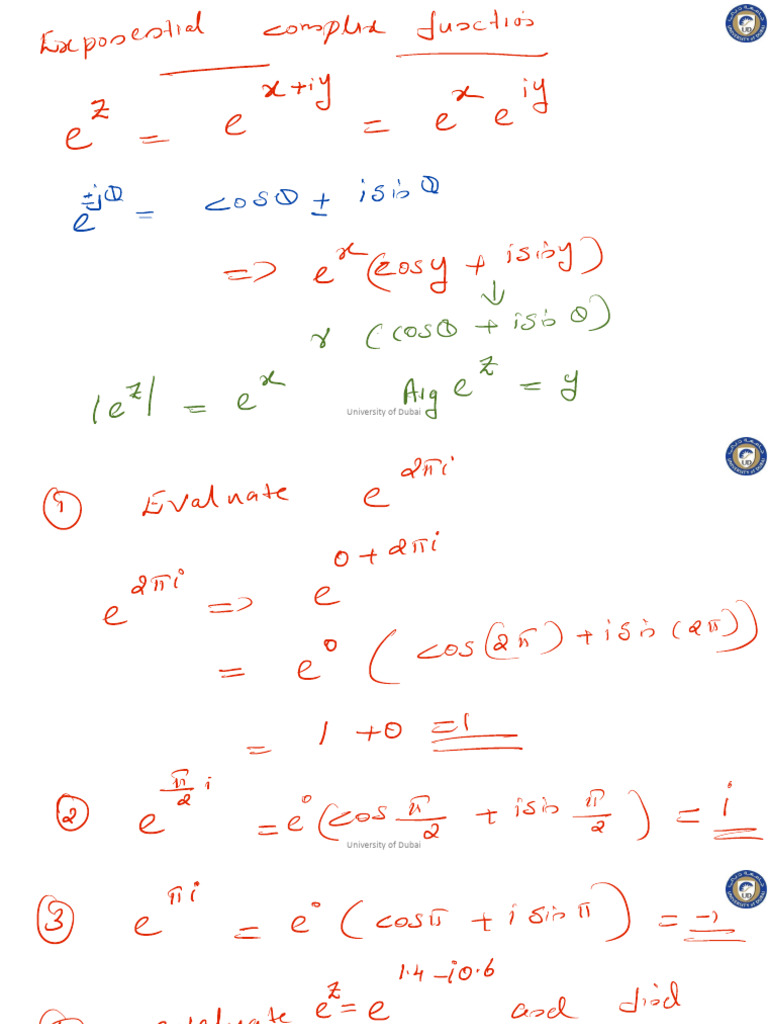 Exponential complex function
e^z = e^{x+iy} = e^x e^{iy}
e^{±jθ} = cosθ ± isinθ
=> e^x (cosy + isiny)
↓
r (cosθ + isinθ)
|e^z| = e^x Arg e^z = y
University of Dubai
① Evaluate e^{2πi}
e^{2πi} => e^{0+2πi}
= e^0 (cos(2π) + isin(2π))
= 1 + 0 = 1
② e^{π/2 i} = e^0 (cos π/2 + isin π/2) = i
University of Dubai
③ e^{πi} = e^0 (cosπ + i sinπ) = -1
e^z = e^{1.4-i0.6} and find